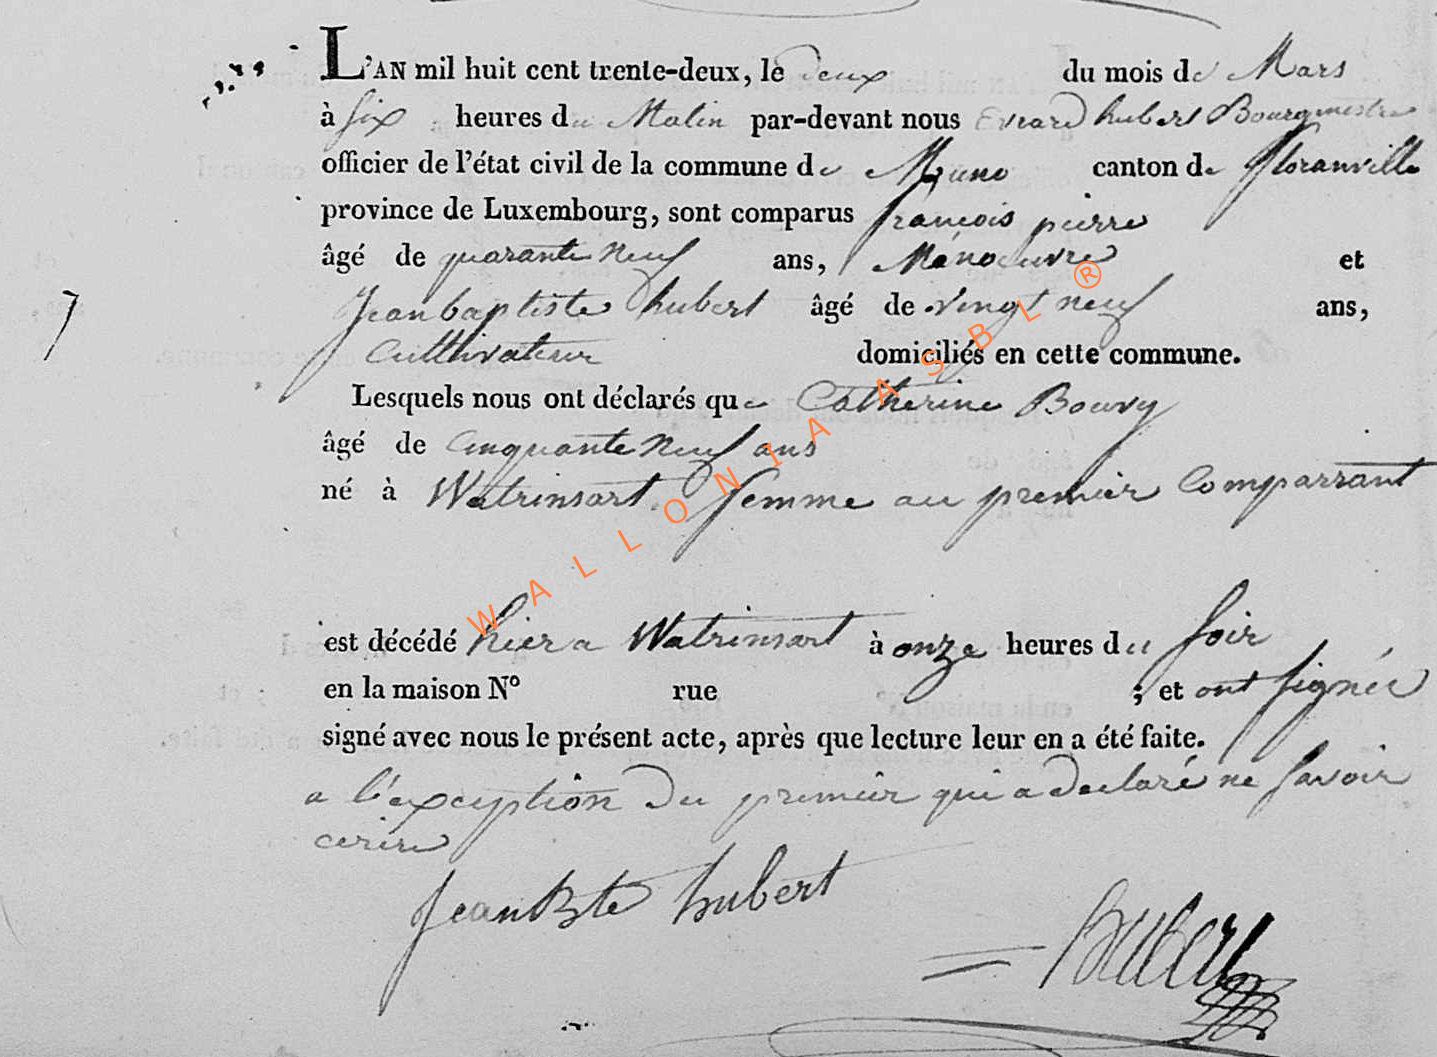 L'AN mil huit cent trente-deux, le deux du mois de Mars
à six heures du Matin par-devant nous Evrard hubert Bourgmestre
officier de l'état civil de la commune de Muno canton de floranville
province de Luxembourg, sont comparus francois pierre
âgé de quarante neuf ans, Manoeuvre et
Jean baptiste hubert âgé de vingt neuf ans,
7
Cultivateur domiciliés en cette commune.
Lesquels nous ont déclarés que Catherine Bouvy
âgé de Cinquante neuf ans
né à Watrinsart femme au premier Comparrant
est décédé hier a Watrinsart à onze heures du soir
en la maison N° rue ; et ont signée
signé avec nous le présent acte, après que lecture leur en a été faite.
a l'exception du premier qui a declaré ne savoir
ecrire
Jean Bte hubert
hubert
WALLONIA ASBL ®